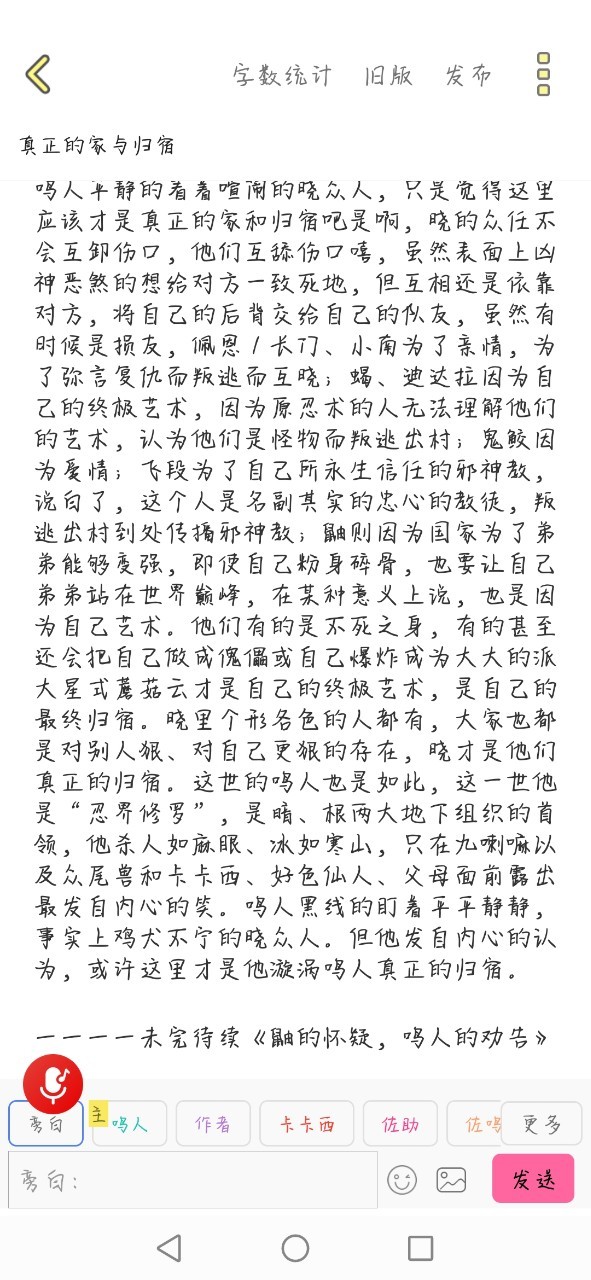 字数统计 旧版 发布
真正的家与归宿
鸣人平静的看着喧闹的晓众人，只是觉得这里
应该才是真正的家和归宿吧是啊，晓的众任不
会互卸伤口，他们互舔伤口嘻，虽然表面上凶
神恶煞的想给对方一致死地，但互相还是依靠
对方，将自己的后背交给自己的队友，虽然有
时候是损友，佩恩/长门、小南为了亲情，为
了弥言复仇而叛逃而互晓；蝎、迪达拉因为自
己的终极艺术，因为原忍术的人无法理解他们
的艺术，认为他们是怪物而叛逃出村；鬼鲛因
为爱情；飞段为了自己所永生信任的邪神教，
说白了，这个人是名副其实的忠心的教徒，叛
逃出村到处传播邪神教；鼬则因为国家为了弟
弟能够变强，即使自己粉身碎骨，也要让自己
弟弟站在世界巅峰，在某种意义上说，也是因
为自己艺术。他们有的是不死之身，有的甚至
还会把自己做成傀儡或自己爆炸成为大大的派
大星式蘑菇云才是自己的终极艺术，是自己的
最终归宿。晓里个形各色的人都有，大家也都
是对别人狠、对自己更狠的存在，晓才是他们
真正的归宿。这世的鸣人也是如此，这一世他
是“忍界修罗”，是暗、根两大地下组织的首
领，他杀人如麻眼、冰如寒山，只在九喇嘛以
及众尾兽和卡卡西、好色仙人、父母面前露出
最发自内心的笑。鸣人黑线的盯着平平静静，
事实上鸡犬不宁的晓众人。但他发自内心的认
为，或许这里才是他漩涡鸣人真正的归宿。
一一一一未完待续《鼬的怀疑，鸣人的劝告》
旁白 主 鸣人 作者 卡卡西 佐助 佐鸣 更多
旁白： 发送